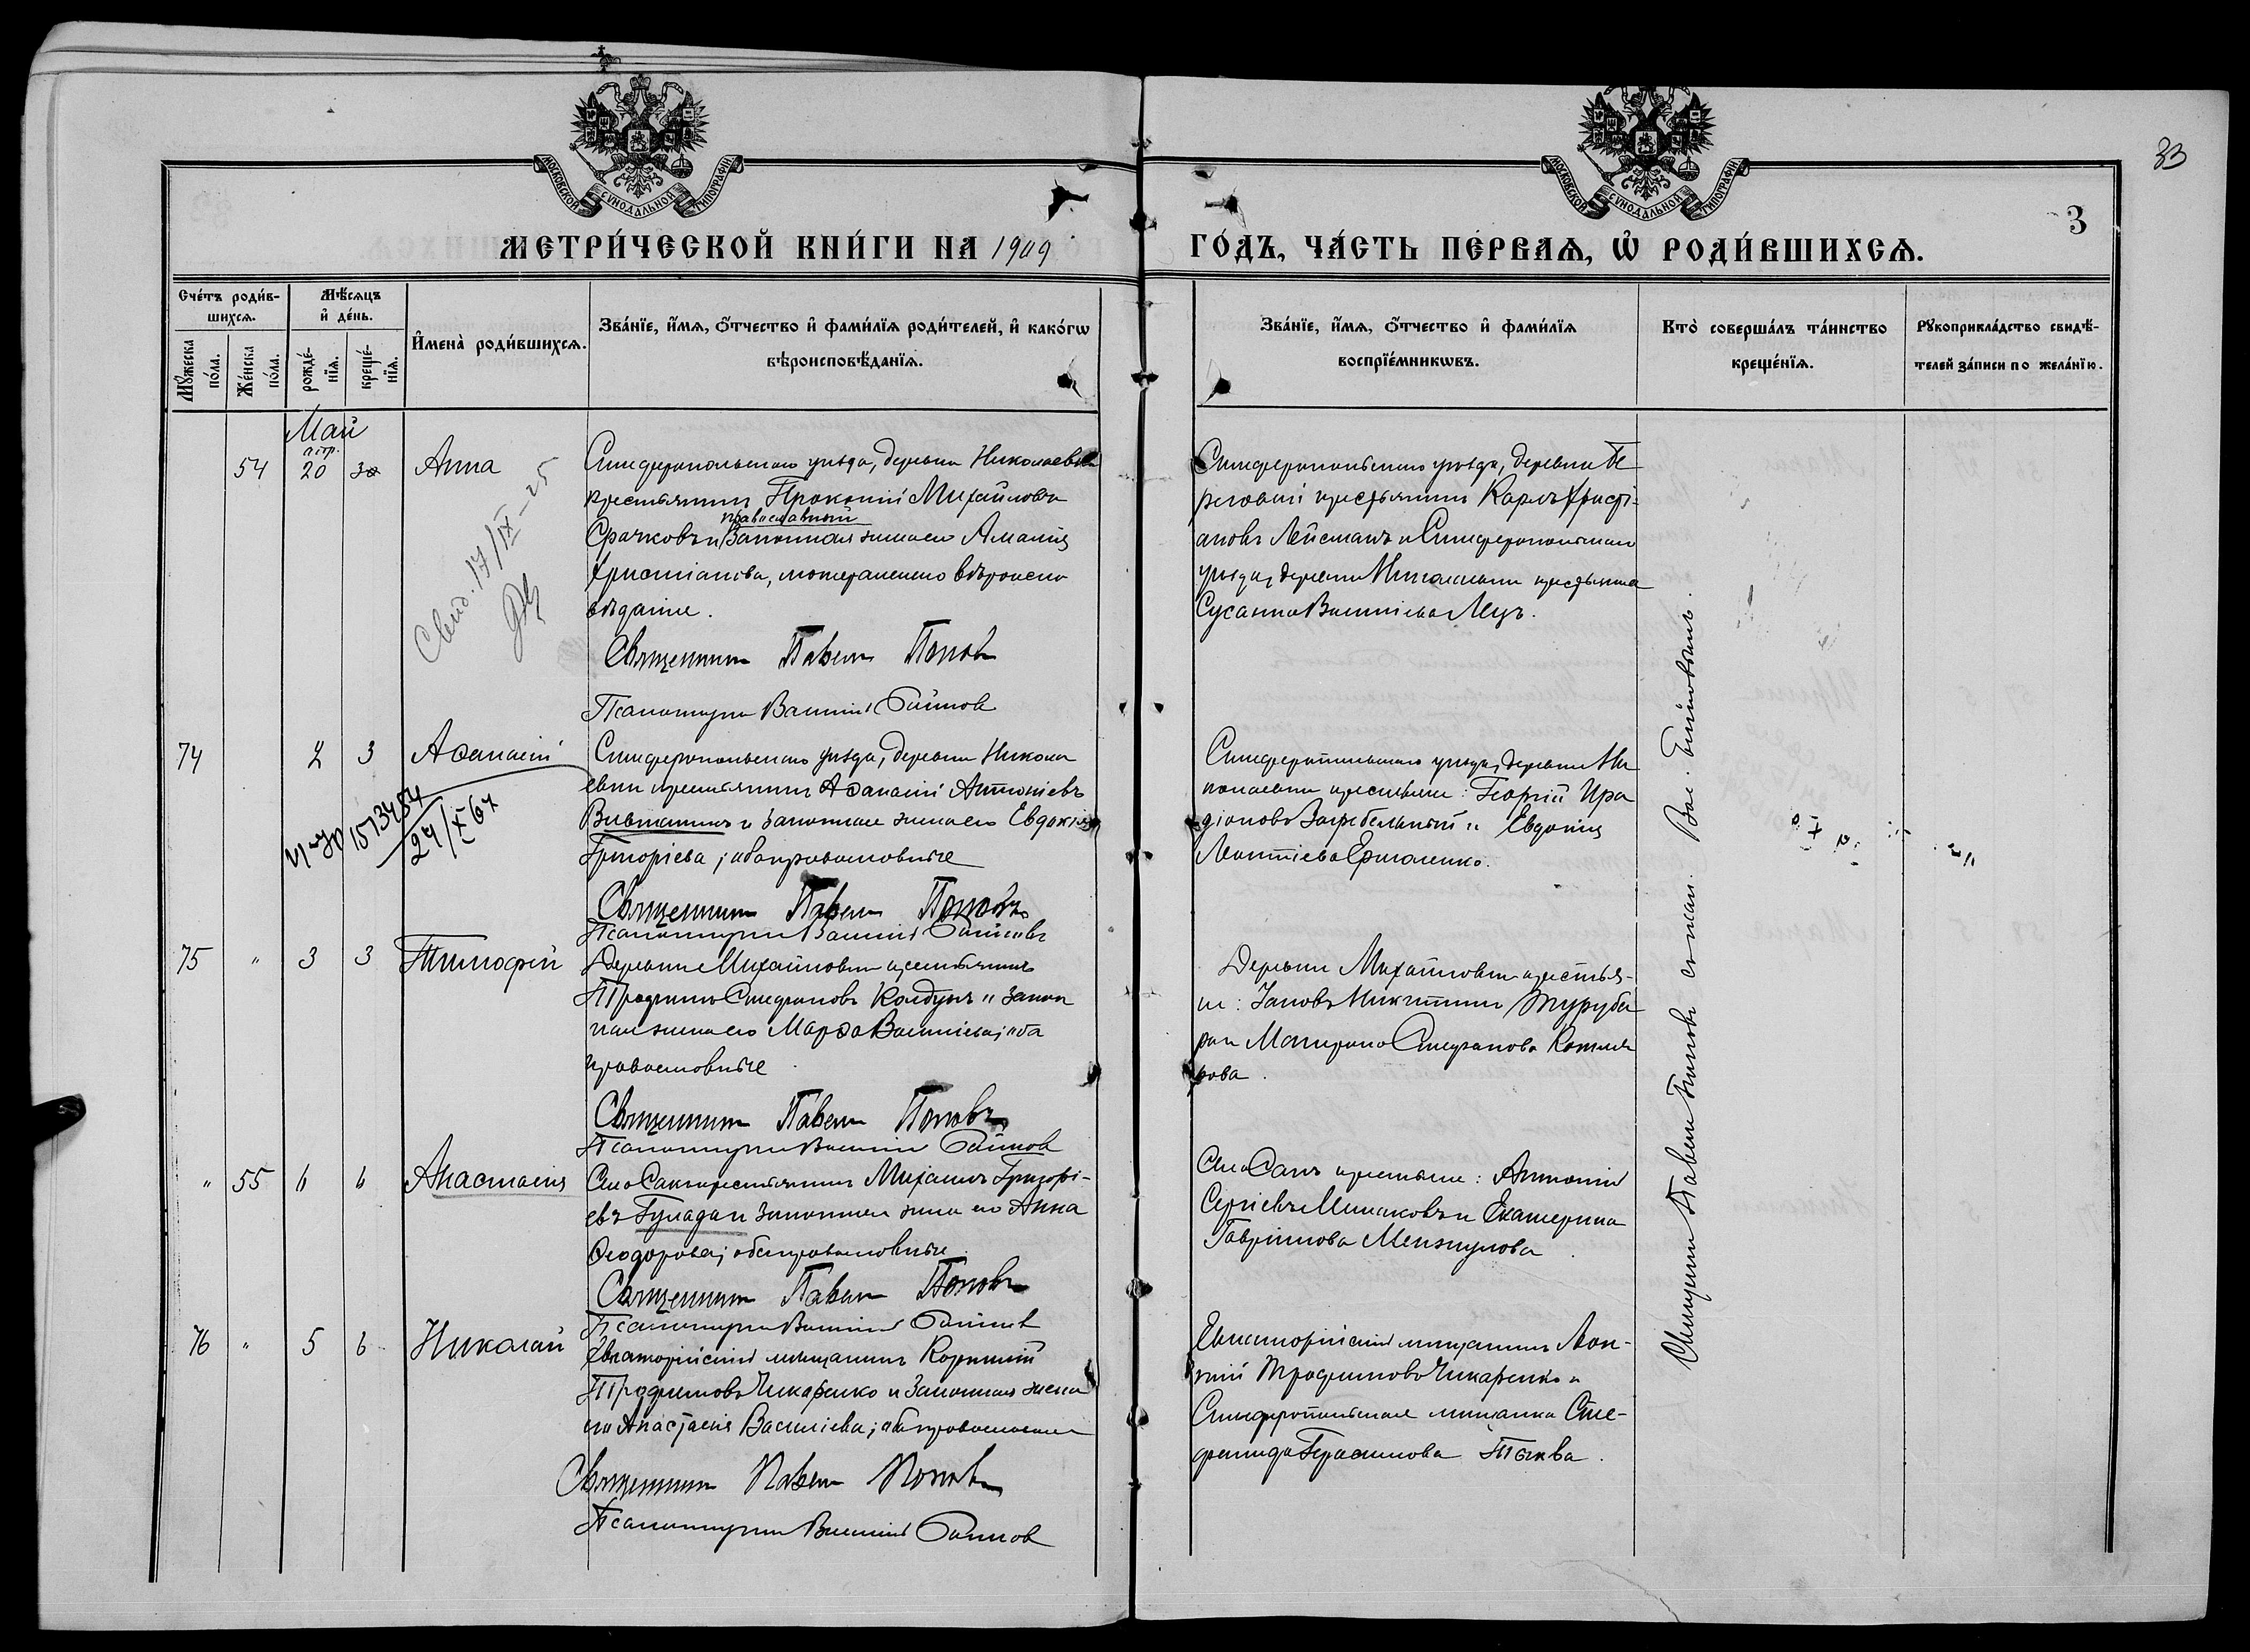 33
3
МОСКОВСКОЙ СѴНОДАЛЬНОЙ ТИПОГРАФІИ
МОСКОВСКОЙ СѴНОДАЛЬНОЙ ТИПОГРАФІИ
МЕТРИ́ЧЕСКОЙ КНИ́ГИ НА 1909 ГО́ДЪ, ЧА́СТЬ ПЕ́РВАѦ, Ѡ҆ РОДИ́ВШИХСѦ.
Сче́тъ роди́в-
шихсѧ.
Мѣ́сѧцъ
и҆ де́нь.
Мꙋ́жеска по́ла.
Же́нска по́ла.
рожде́-
нїѧ.
креще́-
нїѧ.
И҆мена̀ роди́вшихсѧ.
Зва́нїе, и҆́мѧ, ѻ҆́тчество и҆ фами́лїѧ роди́телей, и҆ како́гѡ
вѣроисповѣ́данїѧ.
Зва́нїе, и҆́мѧ, ѻ҆́тчество и҆ фами́лїѧ
воспрїе́мникѡвъ.
Кто̀ соверша́лъ та́инство
креще́нїѧ.
Рꙋкоприкла́дство свидѣ́-
телей за́писи по жела́нїю.
Май
апр.
54 20 30 Анна
Симферопольскаго уѣзда, деревни Николаевки
крестьянинъ Прокопій Михайловъ
православный
Срачковъ и законная жена его Амалія
Христіанова, лютеранскаго вѣроиспо
вѣданія.
Священникъ Павелъ Попов
Псаломщикъ Василій
Свид. 17/IX-25
Симферопольскаго уѣзда, деревни Бе
реговой крестьянинъ Карлъ Христі-
ановъ Лейсманъ и Симферопольскаго
уѣзда, деревни Николаевки крестьянка
Сусанна Василіева Лецъ.
74 2 3 Аѳанасій
Симферопольскаго уѣзда, деревни Никола
евки крестьянинъ Аѳанасій Антоніевъ
и законная жена его Евдокія
Григоріева; оба православные
Священникъ Павелъ Поповъ
Псаломщикъ Василій
1513484
24/X 67
Симферопольскаго уѣзда, деревни Ни
колаевки крестьяне: Георгій Ира
діоновъ Загребельный и Евдокія
Леонтіева Ермоленко.
75 " 3 3 Тимофей
Деревни Михайловки крестьянинъ
Трофимъ Стефановъ Колдунъ и закон
ная жена его Марѳа Василіева; оба
православные
Священникъ Павелъ Поповъ
Псаломщикъ Василій
Деревни Михайловки крестья-
не: Іаковъ Никитинъ Туруба
ра и Матрона Стефанова Котля
рова.
" 55 6 6 Анастасія
Села Сакъ крестьянинъ Михаилъ Григорі-
евъ Гулада и законная жена его Анна
Ѳеодорова; оба православные.
Священникъ Павелъ Поповъ
Псаломщикъ Василій
Села Сакъ крестьяне: Антоній
Сергіевъ Минаковъ и Екатерина
Гавріилова Мензулова.
76 " 5 6 Николай
Евпаторійскій мѣщанинъ Корнилій
Трофимовъ Чикаренко и законная жена
его Анастасія Василіева; оба православные
Священникъ Павелъ Попов
Псаломщикъ Василій
Евпаторійскій мѣщанинъ Леон-
тій Трофимовъ Чикаренко и
Симферопольская мѣщанка Сте-
фанида Герасимова Тыква.
Священникъ Павелъ Поповъ со псал. Вас.